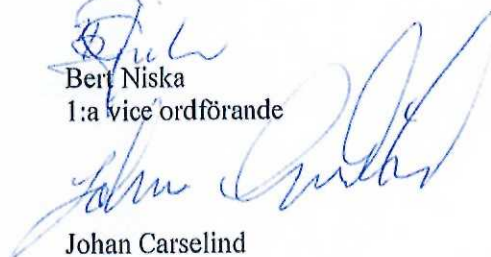 Bert Niska
1:a vice ordförande
Johan Carselind